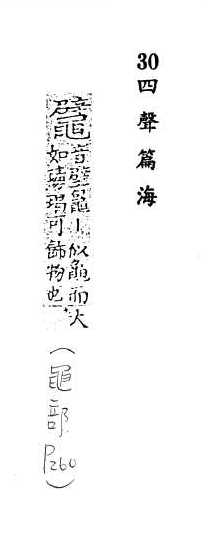 30 四聲篇海
鼊
音壁丨似龜而大
如瑇瑁可飾物也
(黽部 P260)